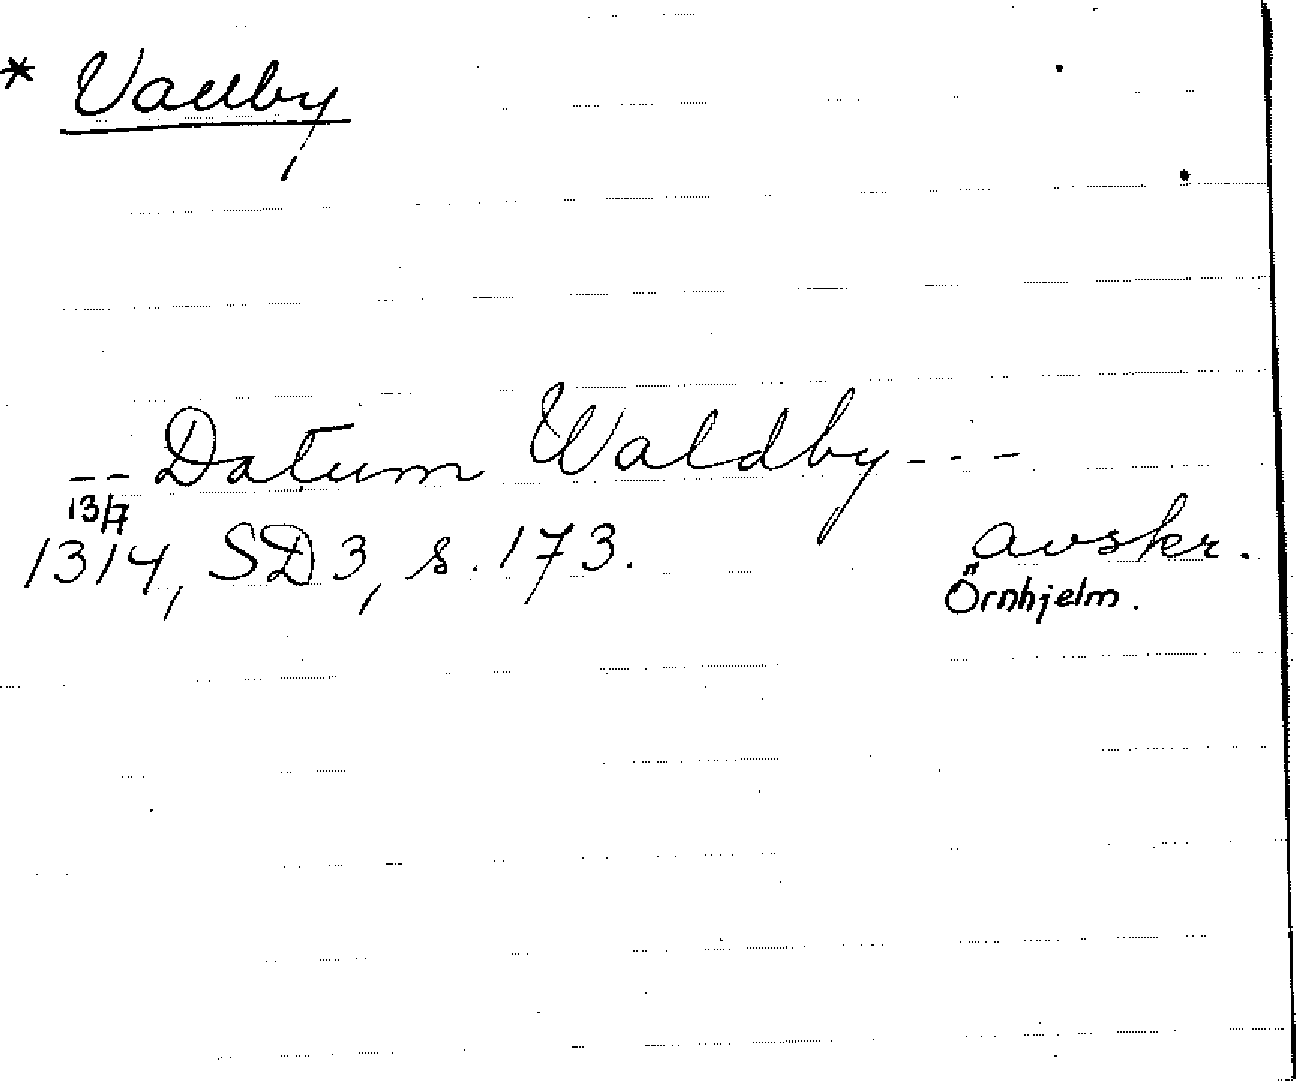 * Vallby
-- Datum Waldby ---
13/7
1314, SD 3, s. 173. avskr.
Örnhjelm.